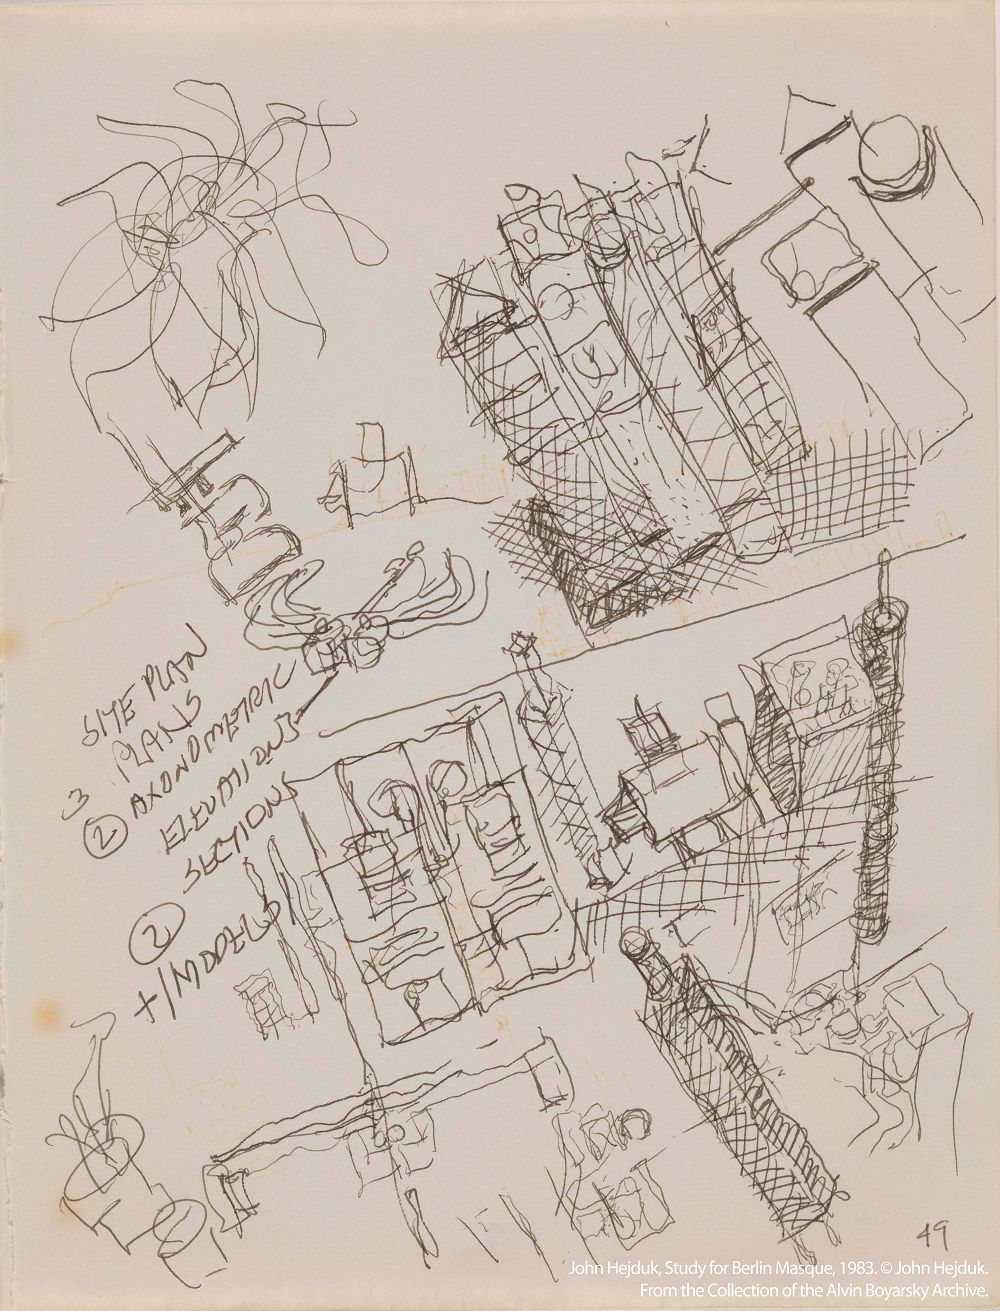 SITE PLAN
PLANS
3
2 AXONOMETRIC
ELEVATIONS
SECTIONS
2
+/MODELS
49
John Hejduk, Study for Berlin Masque, 1983. © John Hejduk.
From the Collection of the Alvin Boyarsky Archive.